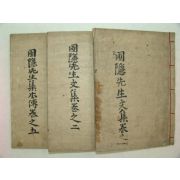 圃隱先生文集卷之
圃隱先生文集卷之二
圃隱先生集本傳卷之五